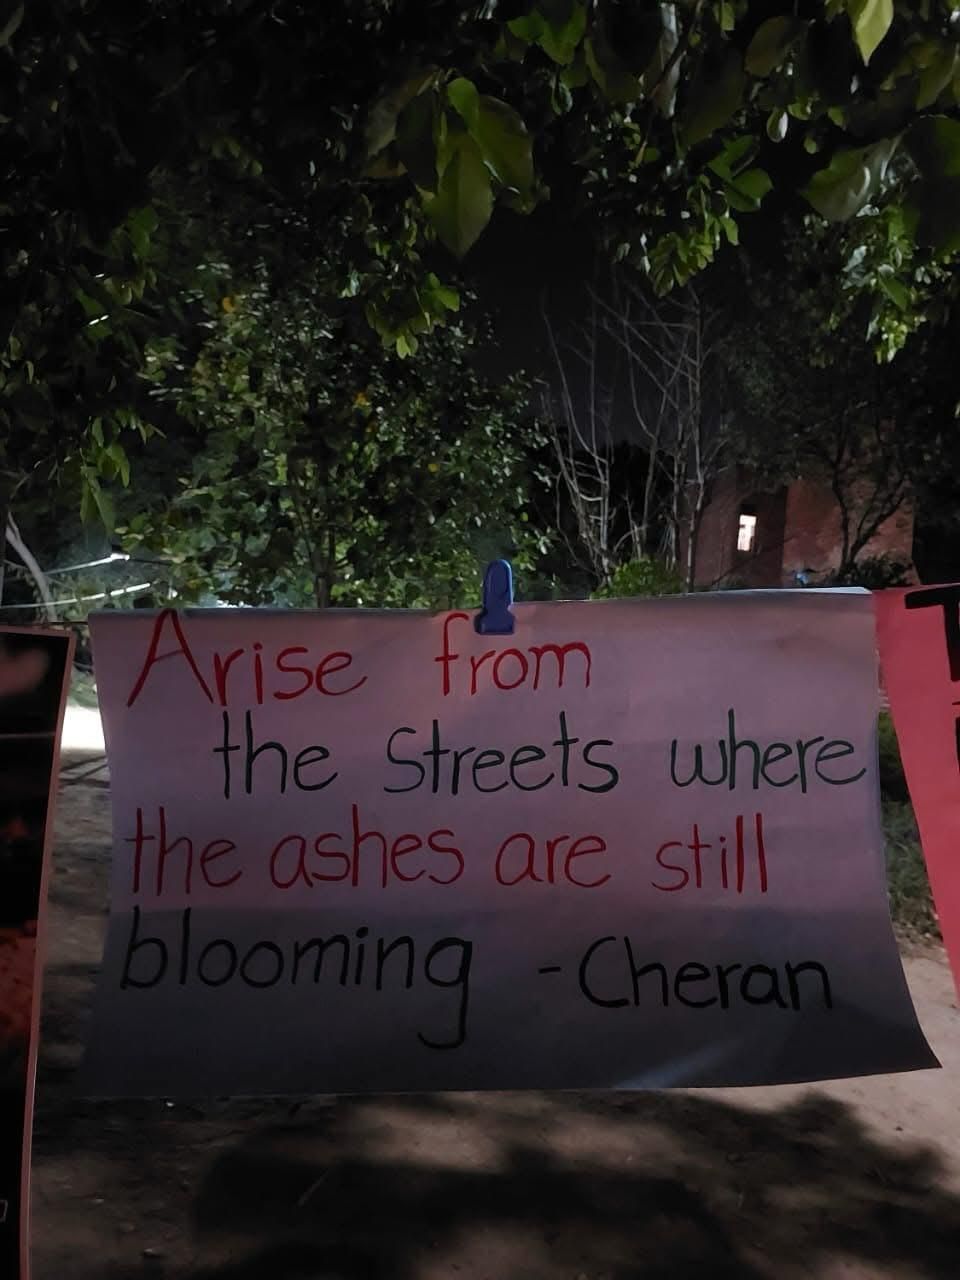 Arise from
the streets where
the ashes are still
blooming - Cheran